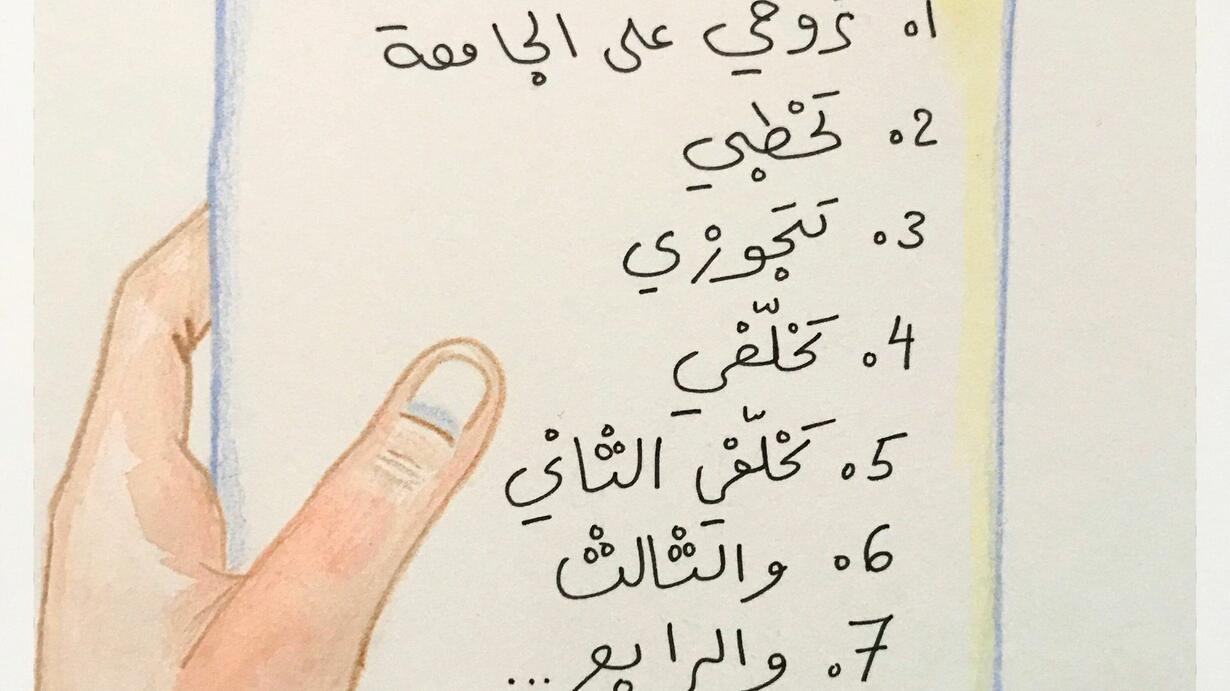 1. تروحي على الجامعة
2. تخطبي
3. تتجوزي
4. تخلّفي
5. تخلّفي الثاني
6. والثالث
7. والرابع...